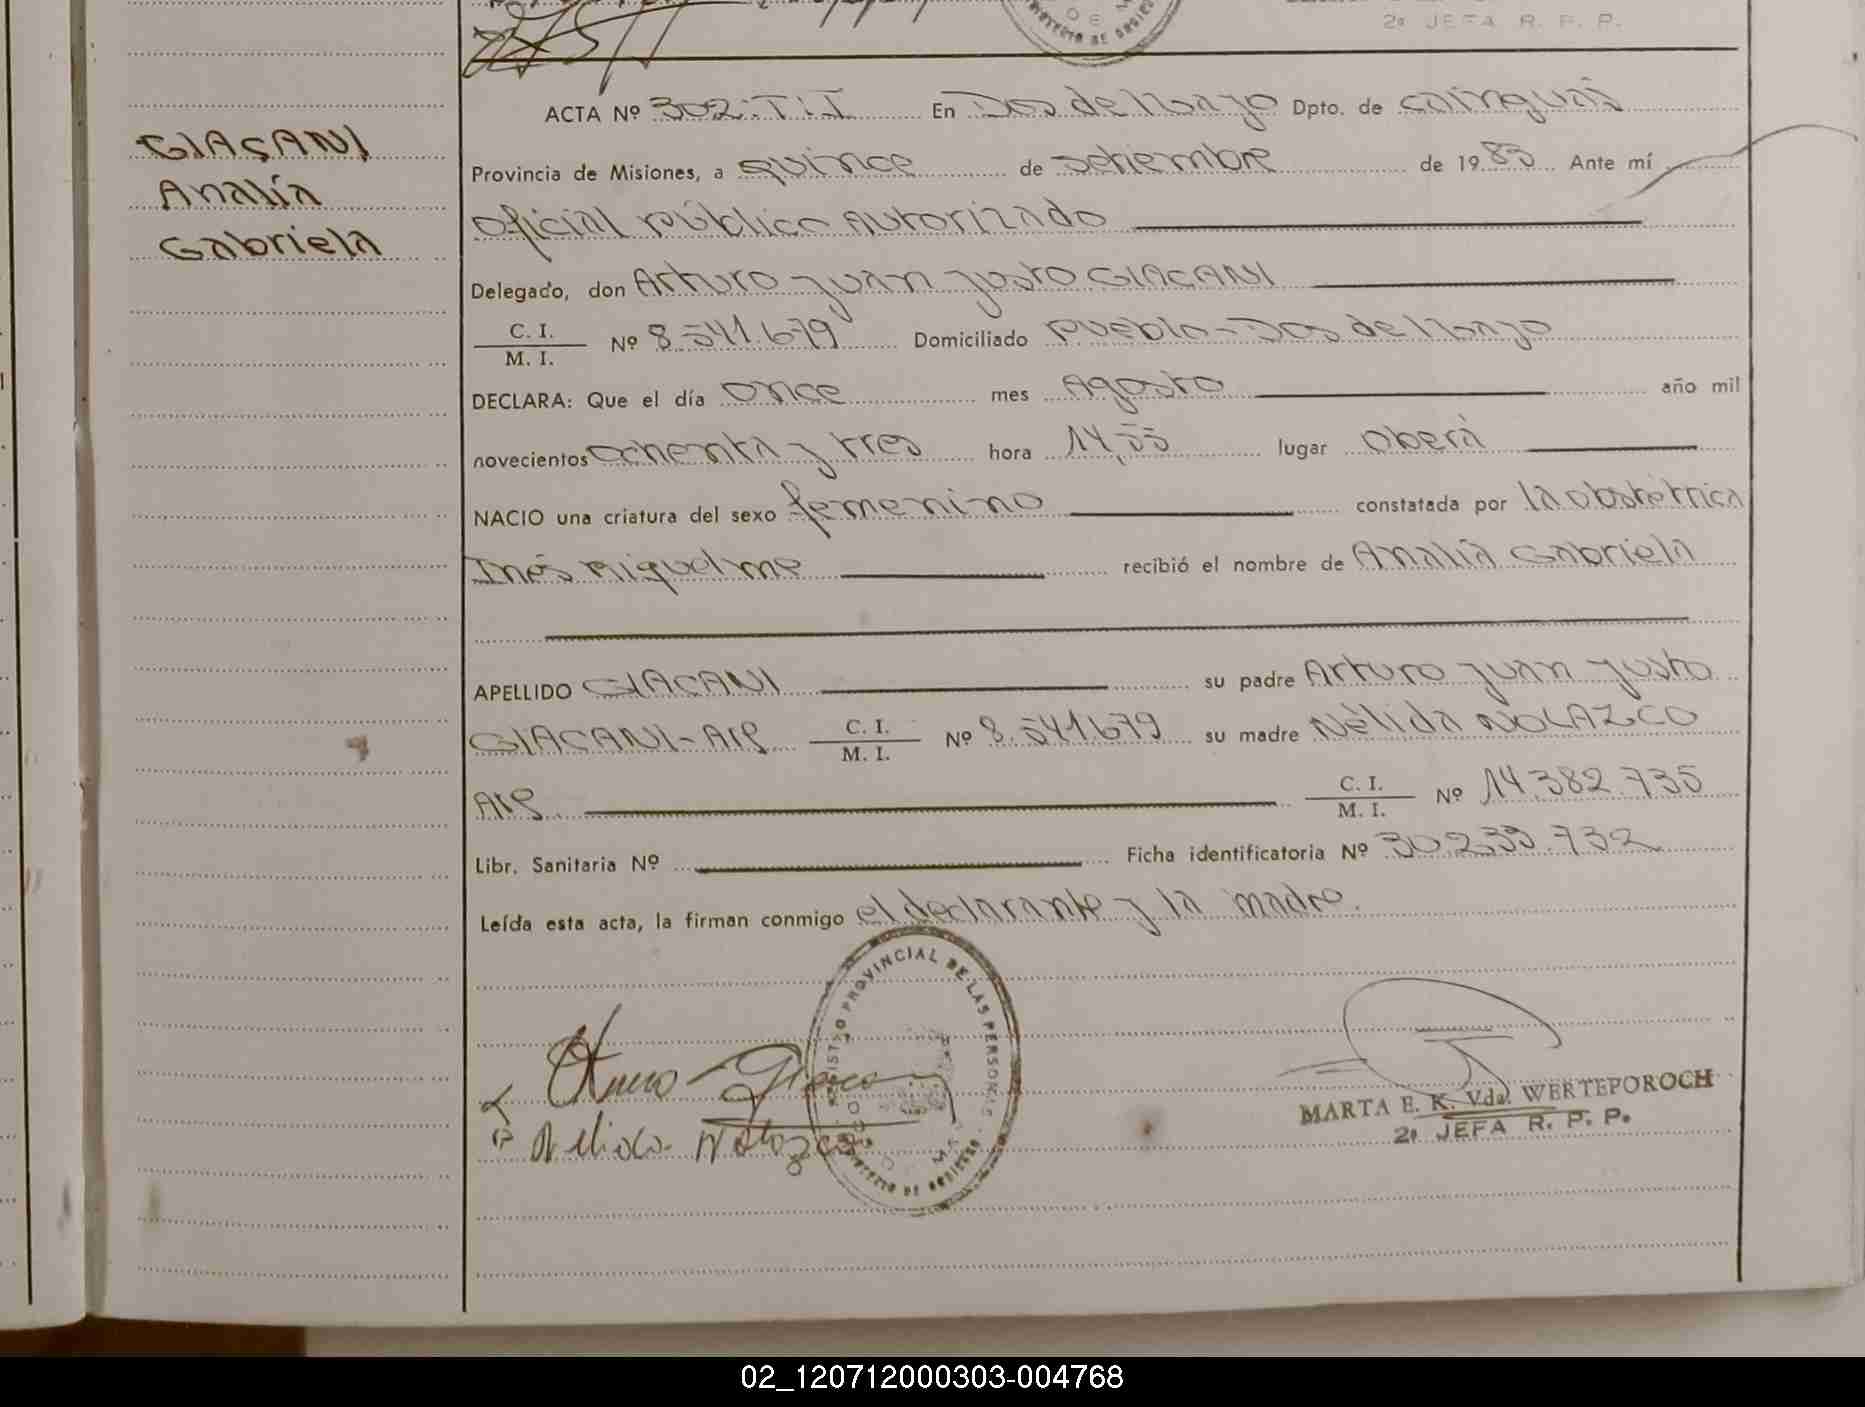 2ª JEFA R. P. P.
GIACANI
Analía
Gabriela
ACTA Nº 302.T.I En Dos de Mayo Dpto. de Cainguás
Provincia de Misiones, a quince de setiembre de 1983 Ante mí
Oficial público Autorizado
Delegado, don Arturo Juan Justo GIACANI
C. I.
M. I. Nº 8.541.679 Domiciliado Pueblo-Dos de Mayo
DECLARA: Que el día once mes Agosto año mil
novecientos ochenta y tres hora 14,55 lugar Oberá
NACIO una criatura del sexo femenino constatada por la obstétrica
Inés Riquelme recibió el nombre de Analía Gabriela
APELLIDO GIACANI su padre Arturo Juan Justo
GIACANI-Arg C. I. M. I. Nº 8.541.679 su madre Nélida NOLAZCO
Arg. C. I. M. I. Nº 14.382.735
Libr. Sanitaria Nº Ficha identificatoria Nº 30.239.732
Leída esta acta, la firman conmigo el declarante y la madre.
REGISTRO PROVINCIAL DE LAS PERSONAS
Nelida Nolazco
MARTA E. K. Vda. WERTEPOROCH
2ª JEFA R. P. P.
02_120712000303-004768